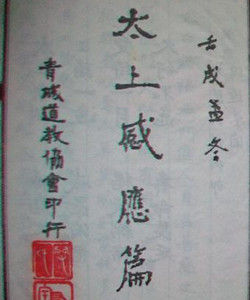 壬戌孟冬
太上感應篇
青城道教協會印行